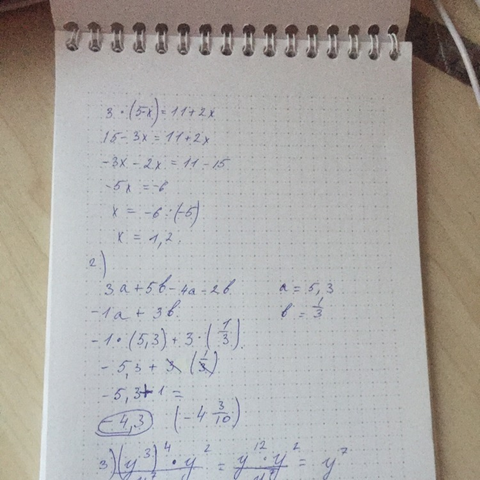 3 · (5-x) = 11 + 2x
15 - 3x = 11 + 2x
-3x - 2x = 11 - 15
-5x = -6
x = -6 : (-5)
x = 1,2.
2)
3a + 5b - 4a - 2b. a = 5,3
-1a + 3b. b = 1/3
-1 · (5,3) + 3 · (1/3).
-5,3 + 3 (1/3)
-5,3 + 1 =
-4,3 (-4 3/10)
3) (y^3)^4 · y^2 = y^12 · y^2 = y^7